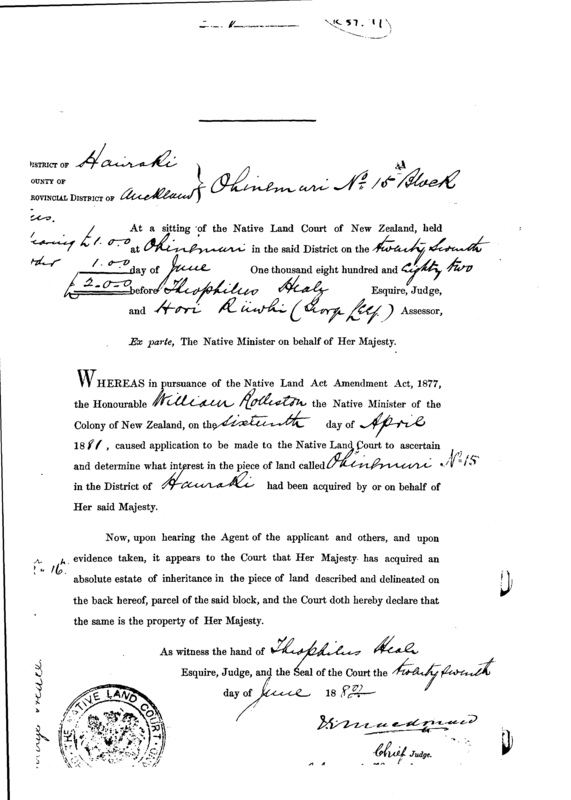 K 57. 11
ISTRICT OF Hauraki
OUNTY OF
ROVINCIAL DISTRICT OF Auckland
Ohinemuri No. 15 AA Block
At a sitting of the Native Land Court of New Zealand, held
at Ohinemuri in the said District on the twenty seventh
day of June One thousand eight hundred and eighty two
before Theophilus Heale Esquire, Judge,
and Hori Assessor,
£1. 0. 0
1. 0. 0
£ 2. 0. 0
Ex parte, The Native Minister on behalf of Her Majesty.
WHEREAS in pursuance of the Native Land Act Amendment Act, 1877,
the Honourable William Rolleston the Native Minister of the
Colony of New Zealand, on the sixteenth day of April
1881, caused application to be made to the Native Land Court to ascertain
and determine what interest in the piece of land called Ohinemuri No. 15
in the District of Hauraki had been acquired by or on behalf of
Her said Majesty.
Now, upon hearing the Agent of the applicant and others, and upon
evidence taken, it appears to the Court that Her Majesty has acquired an
absolute estate of inheritance in the piece of land described and delineated on
the back hereof, parcel of the said block, and the Court doth hereby declare that
the same is the property of Her Majesty.
16
As witness the hand of Theophilus Heale
Esquire, Judge, and the Seal of the Court the twenty seventh
day of June 1882
Chief Judge.
THE NATIVE LAND COURT